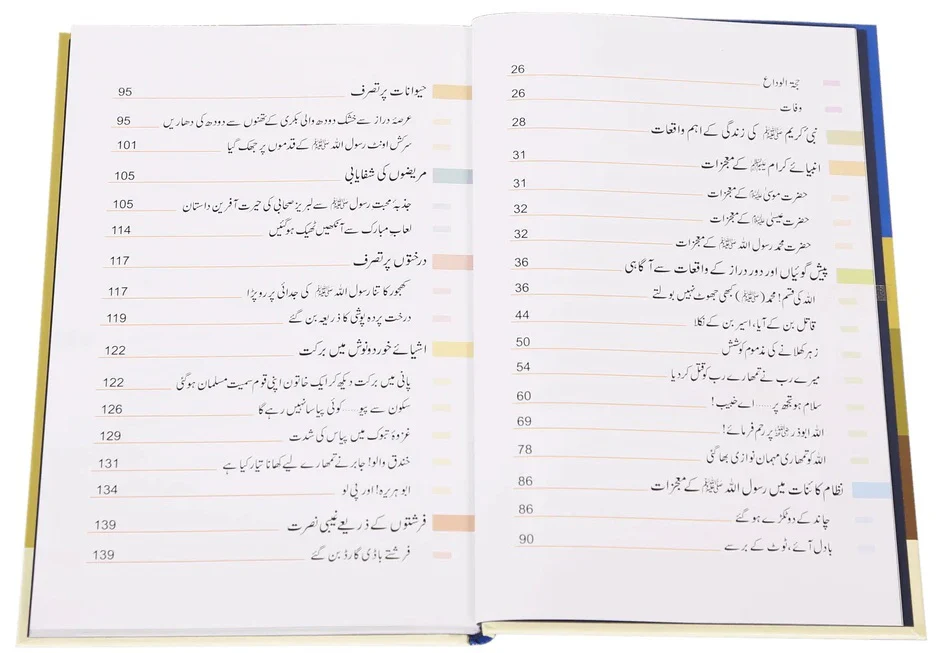 حجۃ الوداع 26
وفات 26
نبی کریم ﷺ کی زندگی کے اہم واقعات 28
انبیائے کرام علیہم السلام کے معجزات 31
حضرت موسیٰ علیہ السلام کے معجزات 31
حضرت عیسیٰ علیہ السلام کے معجزات 32
حضرت محمد رسول اللہ ﷺ کے معجزات 32
پیش گوئیاں اور دور دراز کے واقعات سے آگاہی 36
اللہ کی قسم! محمد (ﷺ) کبھی جھوٹ نہیں بولتے 36
قاتل بن کے آیا، اسیر بن کے نکلا 44
زہر کھلانے کی مذموم کوشش 50
میرے رب نے تمھارے رب کو قتل کر دیا 54
سلام ہو تجھ پر ..... اے خبیب! 60
اللہ ابوذر رضی اللہ عنہ پر رحم فرمائے! 69
اللہ کو تمھاری مہمان نوازی بھا گئی 78
نظام کائنات میں رسول اللہ ﷺ کے معجزات 86
چاند کے دو ٹکڑے ہو گئے 86
بادل آئے، ٹوٹ کے برسے 90
حیوانات پر تصرف 95
عرصۂ دراز سے خشک دودھ والی بکری کے تھنوں سے دودھ کی دھاریں 95
سرکش اونٹ رسول اللہ ﷺ کے قدموں پر جھک گیا 101
مریضوں کی شفایابی 105
جذبۂ محبت رسول ﷺ سے لبریز صحابی کی حیرت آفرین داستان 105
لعاب مبارک سے آنکھیں ٹھیک ہو گئیں 114
درختوں پر تصرف 117
کھجور کا تنا رسول اللہ ﷺ کی جدائی پر رو پڑا 117
درخت پردہ پوشی کا ذریعہ بن گئے 119
اشیائے خورد و نوش میں برکت 122
پانی میں برکت دیکھ کر ایک خاتون اپنی قوم سمیت مسلمان ہو گئی 122
سکون سے پیو ..... کوئی پیاسا نہیں رہے گا 126
غزوۂ تبوک میں پیاس کی شدت 129
خندق والو! جابر نے تمھارے لیے کھانا تیار کیا ہے 131
ابو ہریرہ! اور پی لو 134
فرشتوں کے ذریعے غیبی نصرت 139
فرشتے باڈی گارڈ بن گئے 139